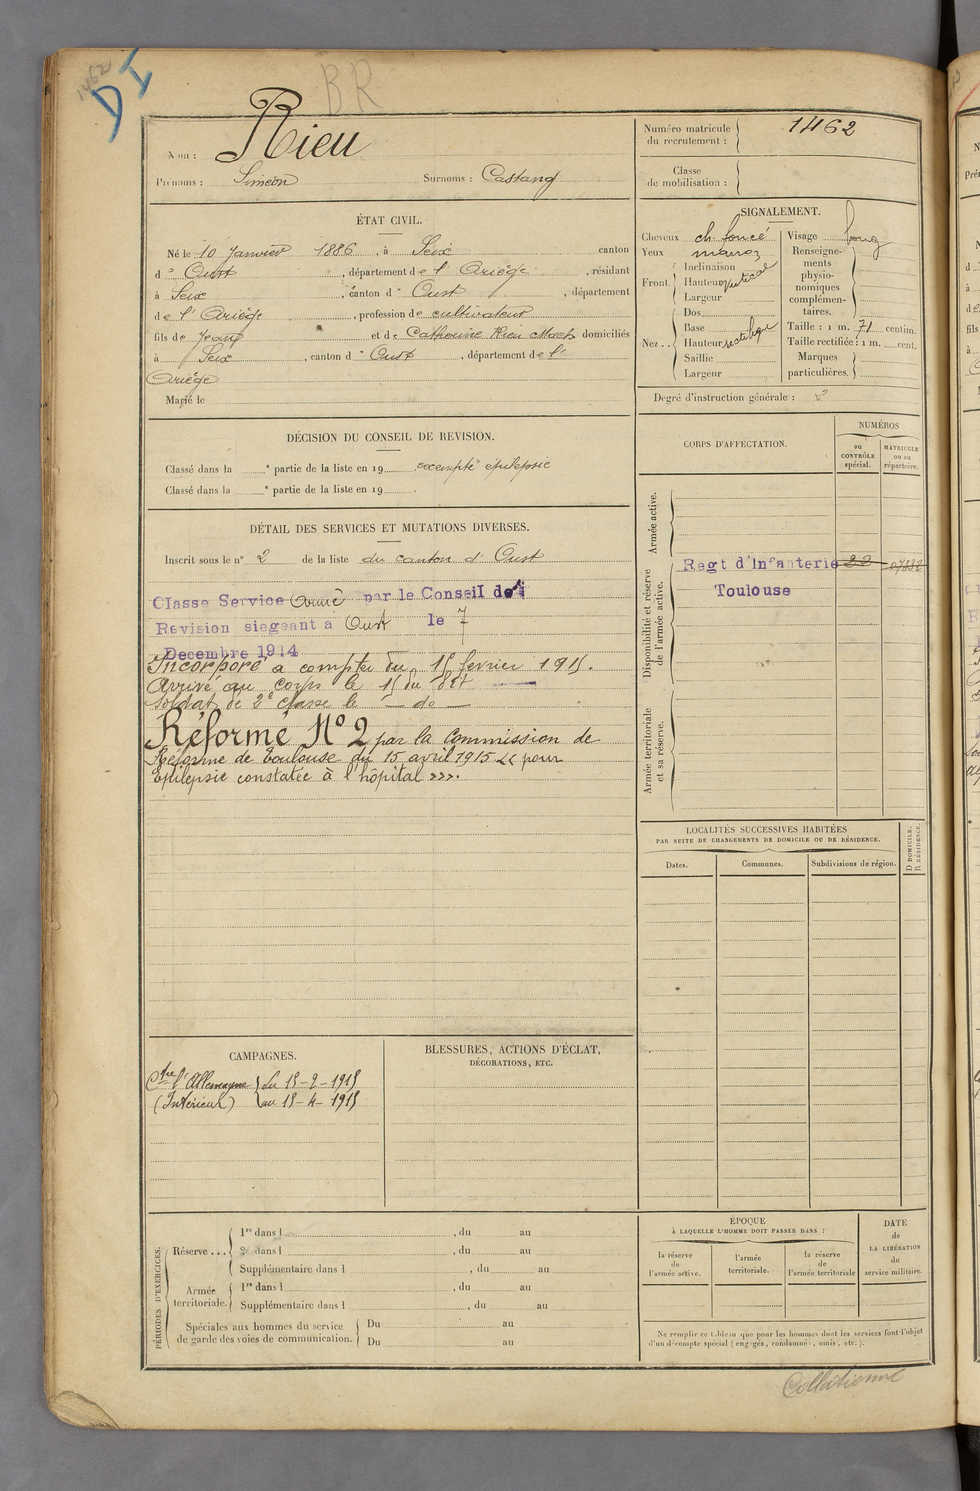 1462
D I
BR
Nom : Rieu
Prénoms : Siméon Surnoms : Castang
Numéro matricule du recrutement : 1462
Classe de mobilisation :
ÉTAT CIVIL.
Né le 10 Janvier 1886, à Seix canton
d' Oust, département de l' Ariège, résidant
à Seix, canton d' Oust, département
de l' Ariège, profession de cultivateur
fils de Jean et de Catherine Rieu domiciliés
à Seix, canton d' Oust, département de l'
Ariège
Marié le
SIGNALEMENT.
Cheveux ch. foncé Visage long
Yeux
Front Inclinaison
Hauteur vertical
Largeur
Nez Dos
Base
Hauteur rectiligne
Saillie
Largeur
Renseignements physionomiques complémentaires.
Taille : 1 m. 71 centim.
Taille rectifiée : 1 m. cent.
Marques particulières.
Degré d'instruction générale : 2
DÉCISION DU CONSEIL DE REVISION.
Classé dans la e partie de la liste en 19 exempté épilepsie
Classé dans la e partie de la liste en 19 .
DÉTAIL DES SERVICES ET MUTATIONS DIVERSES.
Inscrit sous le n° 2 de la liste du canton d' Oust
Classe Service Armé par le Conseil de
Revision siegeant à Oust le 7
Decembre 1914
Incorporé à compter du 15 fevrier 1915.
Arrivé au corps le 15 du dit
Soldat de 2e classe le — de —
Réformé N° 2 par la Commission de
Réforme de Toulouse du 15 avril 1915 << pour
Epilepsie constatée à l'hôpital >>.
CORPS D'AFFECTATION.
NUMÉROS
au CONTRÔLE spécial.
MATRICULE ou au répertoire.
Armée active.
Disponibilité et réserve de l'armée active.
Regt d'Infanterie
Toulouse
Armée territoriale et sa réserve.
LOCALITÉS SUCCESSIVES HABITÉES
PAR SUITE DE CHANGEMENTS DE DOMICILE OU DE RÉSIDENCE.
Dates. Communes. Subdivisions de région. D DOMICILE. R RÉSIDENCE.
CAMPAGNES.
Ctre l'Allemagne du 15-2-1915
(Intérieur) au 15-4-1915
BLESSURES, ACTIONS D'ÉCLAT,
DÉCORATIONS, ETC.
PÉRIODES D'EXERCICES.
Réserve ... 1re dans l , du au
2e dans l , du au
Supplémentaire dans l , du au
Armée territoriale. 1re dans l , du au
Supplémentaire dans l , du au
Spéciales aux hommes du service Du au
de garde des voies de communication. Du au
ÉPOQUE
À LAQUELLE L'HOMME DOIT PASSER DANS :
la réserve de l'armée active.
l'armée territoriale.
la réserve de l'armée territoriale
DATE de LA LIBÉRATION du service militaire.
Ne remplir ce tableau que pour les hommes dont les services font l'objet
d'un décompte spécial (engagés, condamnés, omis, etc.).
Collationné